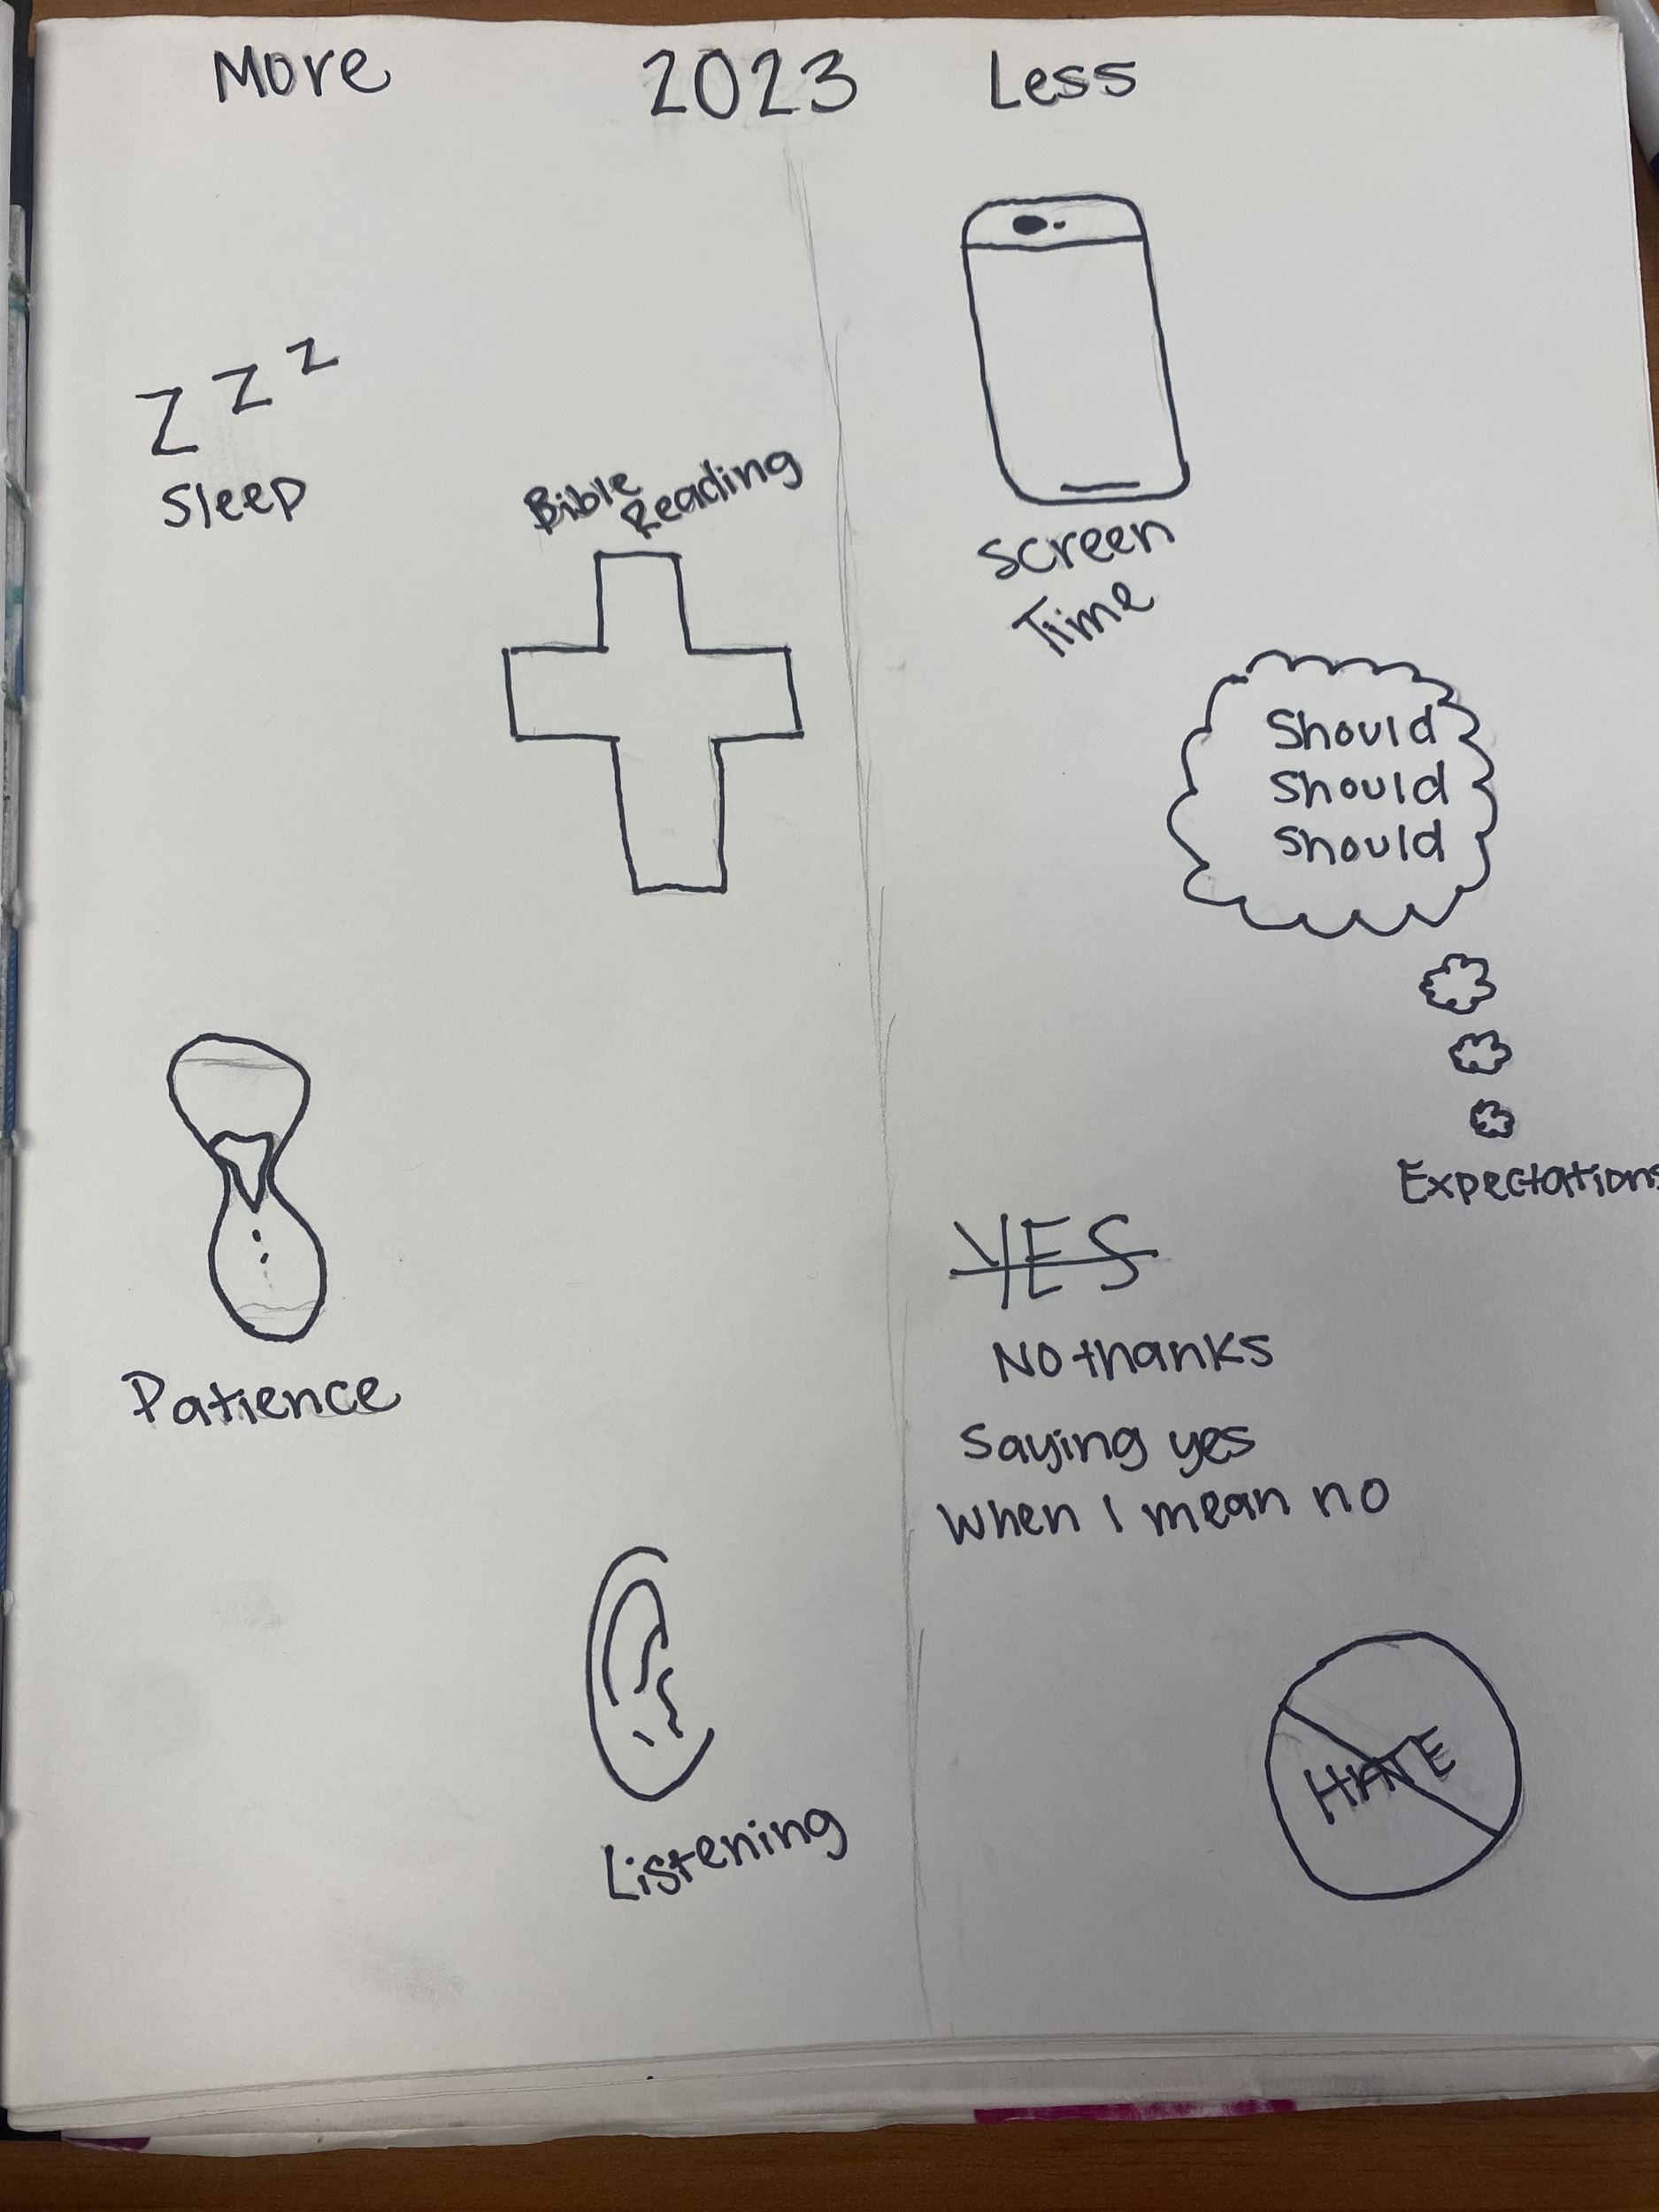 More 2023 Less
z z z
Sleep
Bible
Reading
Screen
Time
Should
Should
Should
Expectations
Patience
YES
No thanks
Saying yes
When I mean no
Listening
HATE